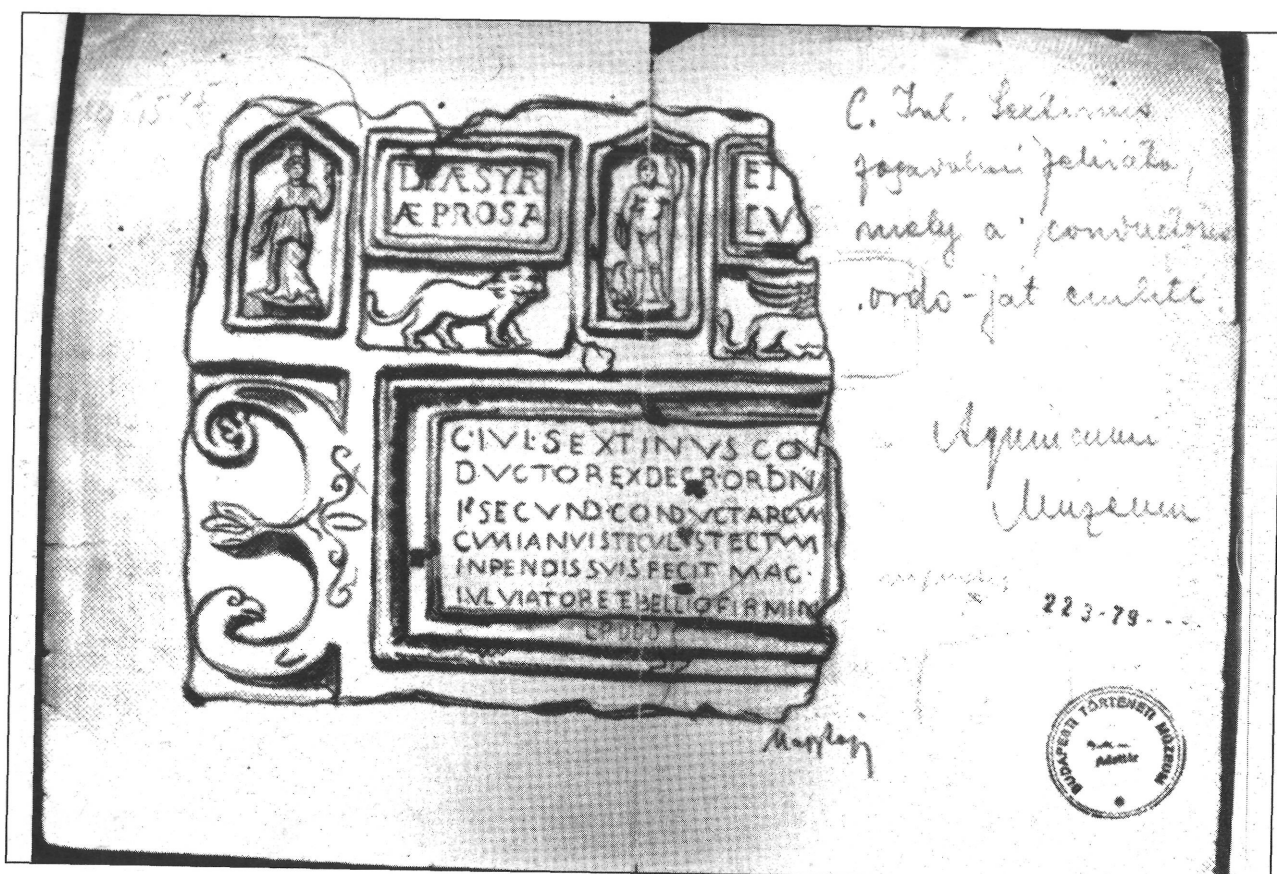 DEÆSYR
ÆPROSA
ET
LV
C·IVL·SEXTINVS CON
DVCTOR EX DECR·ORDN
SECVND·CONDVCTARCW
CVMIANVISTECVL·STECTVM
INPENDIS SVIS FECIT MAG·
IVL VIATOR ET BELLIO FIRMIN
C. Jul. Sextinus
fogadalmi felirata,
mely a conductorus
ordo-ját említi.
Aquincum
Múzeum
223-79
BUDAPESTI TÖRTÉNETI MÚZEUM